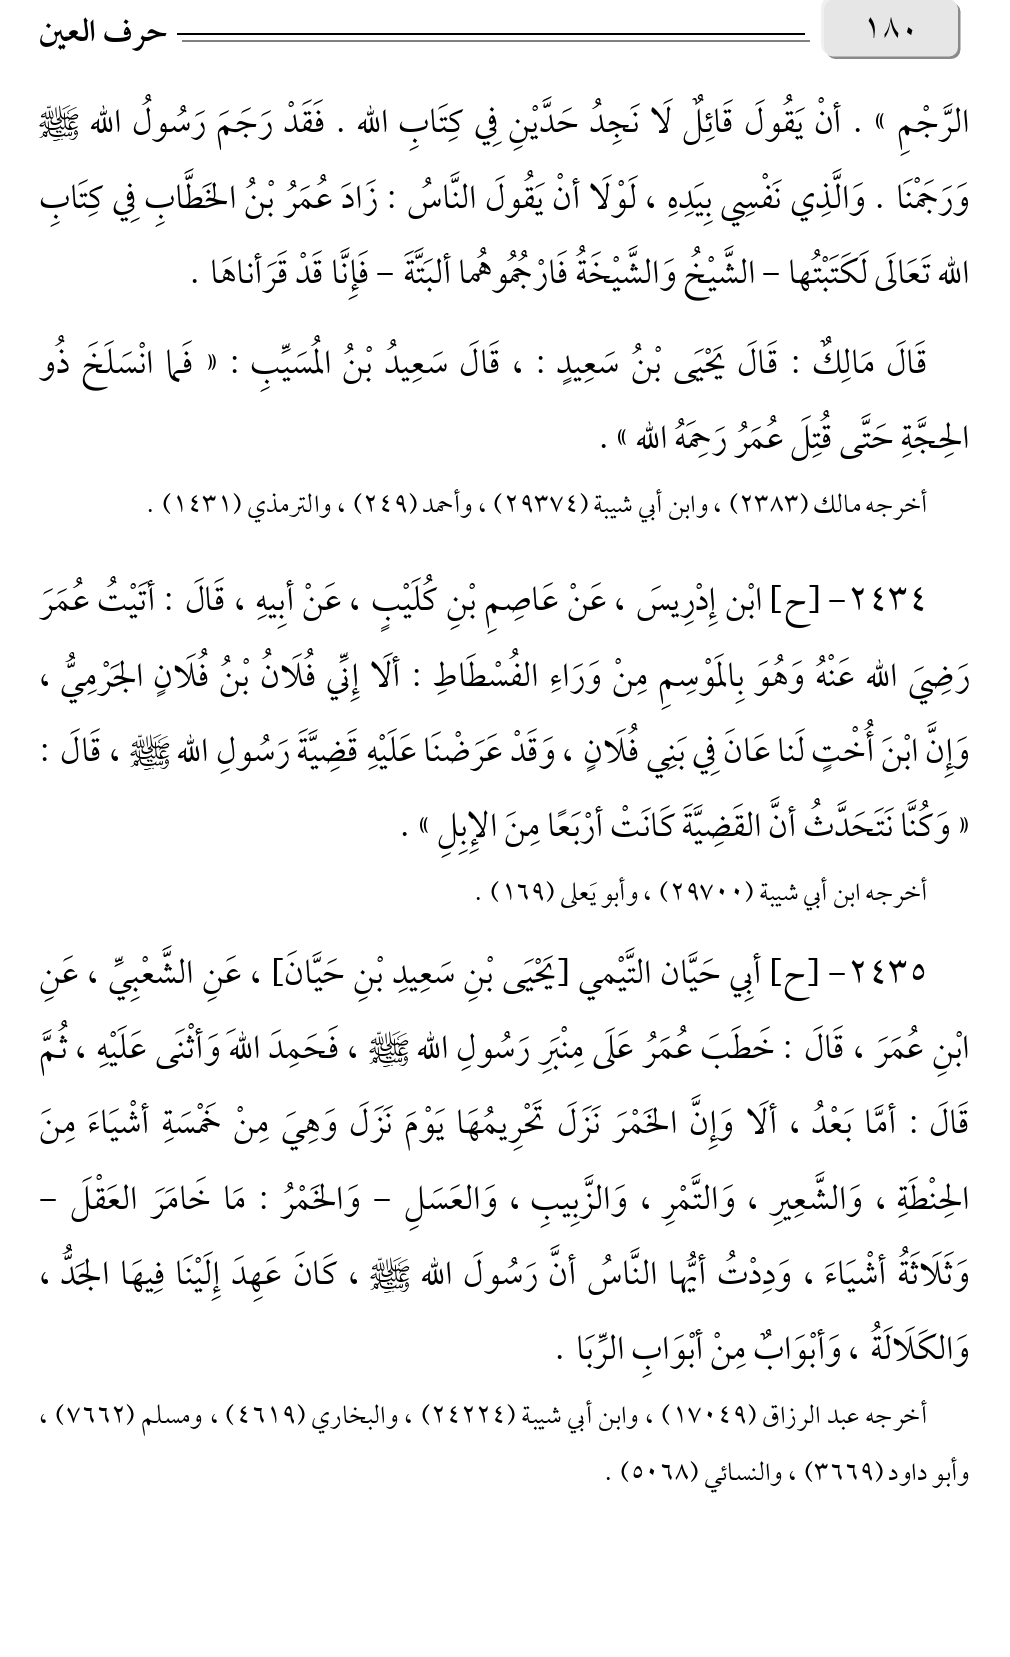 ١٨٠ حرف العين
الرَّجْمِ » . أنْ يَقُولَ قَائِلٌ لَا نَجِدُ حَدَّيْنِ فِي كِتَابِ الله . فَقَدْ رَجَمَ رَسُولُ الله ﷺ
وَرَجَمْنَا . وَالَّذِي نَفْسِي بِيَدِهِ ، لَوْلَا أنْ يَقُولَ النَّاسُ : زَادَ عُمَرُ بْنُ الخَطَّابِ فِي كِتَابِ
الله تَعَالَى لَكَتَبْتُها – الشَّيْخُ وَالشَّيْخَةُ فَارْجُمُوهُما ألبَتَّةَ – فَإِنَّا قَدْ قَرَأناهَا .
قَالَ مَالِكٌ : قَالَ يَحْيَى بْنُ سَعِيدٍ : ، قَالَ سَعِيدُ بْنُ المُسَيِّبِ : « فَما انْسَلَخَ ذُو
الحِجَّةِ حَتَّى قُتِلَ عُمَرُ رَحِمَهُ الله » .
أخرجه مالك (٢٣٨٣) ، وابن أبي شيبة (٢٩٣٧٤) ، وأحمد (٢٤٩) ، والترمذي (١٤٣١) .
٢٤٣٤- [ح] ابْن إِدْرِيسَ ، عَنْ عَاصِمِ بْنِ كُلَيْبٍ ، عَنْ أبِيهِ ، قَالَ : أتَيْتُ عُمَرَ
رَضِيَ الله عَنْهُ وَهُوَ بِالمَوْسِمِ مِنْ وَرَاءِ الفُسْطَاطِ : ألَا إِنِّي فُلَانُ بْنُ فُلَانٍ الجَرْمِيُّ ،
وَإِنَّ ابْنَ أُخْتٍ لَنا عَانَ فِي بَنِي فُلَانٍ ، وَقَدْ عَرَضْنَا عَلَيْهِ قَضِيَّةَ رَسُولِ الله ﷺ ، قَالَ :
« وَكُنَّا نَتَحَدَّثُ أنَّ القَضِيَّةَ كَانَتْ أرْبَعًا مِنَ الإِبِلِ » .
أخرجه ابن أبي شيبة (٢٩٧٠٠) ، وأبو يَعلى (١٦٩) .
٢٤٣٥- [ح] أبِي حَيَّان التَّيْمي [يَحْيَى بْنِ سَعِيدِ بْنِ حَيَّانَ] ، عَنِ الشَّعْبِيِّ ، عَنِ
ابْنِ عُمَرَ ، قَالَ : خَطَبَ عُمَرُ عَلَى مِنْبَرِ رَسُولِ الله ﷺ ، فَحَمِدَ اللهَ وَأثْنَى عَلَيْهِ ، ثُمَّ
قَالَ : أمَّا بَعْدُ ، ألَا وَإِنَّ الخَمْرَ نَزَلَ تَحْرِيمُهَا يَوْمَ نَزَلَ وَهِيَ مِنْ خَمْسَةِ أشْيَاءَ مِنَ
الحِنْطَةِ ، وَالشَّعِيرِ ، وَالتَّمْرِ ، وَالزَّبِيبِ ، وَالعَسَلِ – وَالخَمْرُ : مَا خَامَرَ العَقْلَ –
وَثَلَاثَةُ أشْيَاءَ ، وَدِدْتُ أيُّها النَّاسُ أنَّ رَسُولَ الله ﷺ ، كَانَ عَهِدَ إِلَيْنَا فِيهَا الجَدُّ ،
وَالكَلَالَةُ ، وَأبْوَابٌ مِنْ أبْوَابِ الرِّبَا .
أخرجه عبد الرزاق (١٧٠٤٩) ، وابن أبي شيبة (٢٤٢٢٤) ، والبخاري (٤٦١٩) ، ومسلم (٧٦٦٢) ،
وأبو داود (٣٦٦٩) ، والنسائي (٥٠٦٨) .